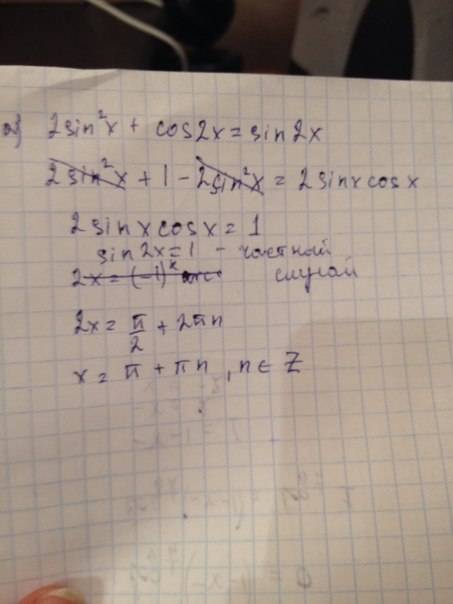 а) 2sin²x + cos2x = sin2x
2sin²x + 1 - 2sin²x = 2sinxcosx
2sinxcosx = 1
sin2x = 1 - частный
случай
2x = (-1)^k arc
2x = π/2 + 2πn
x = π + πn, n ∈ Z